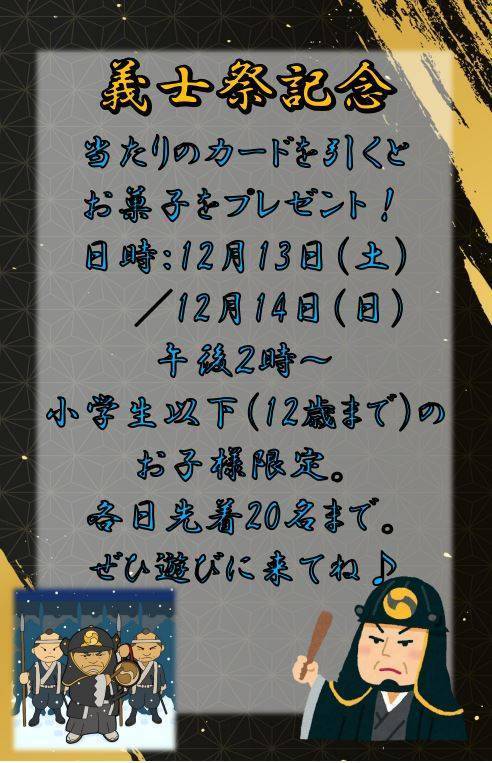 義士祭記念
当たりのカードを引くと
お菓子をプレゼント！
日時:12月13日(土)
／12月14日(日)
午後2時～
小学生以下(12歳まで)の
お子様限定。
各日先着20名まで。
ぜひ遊びに来てね♪